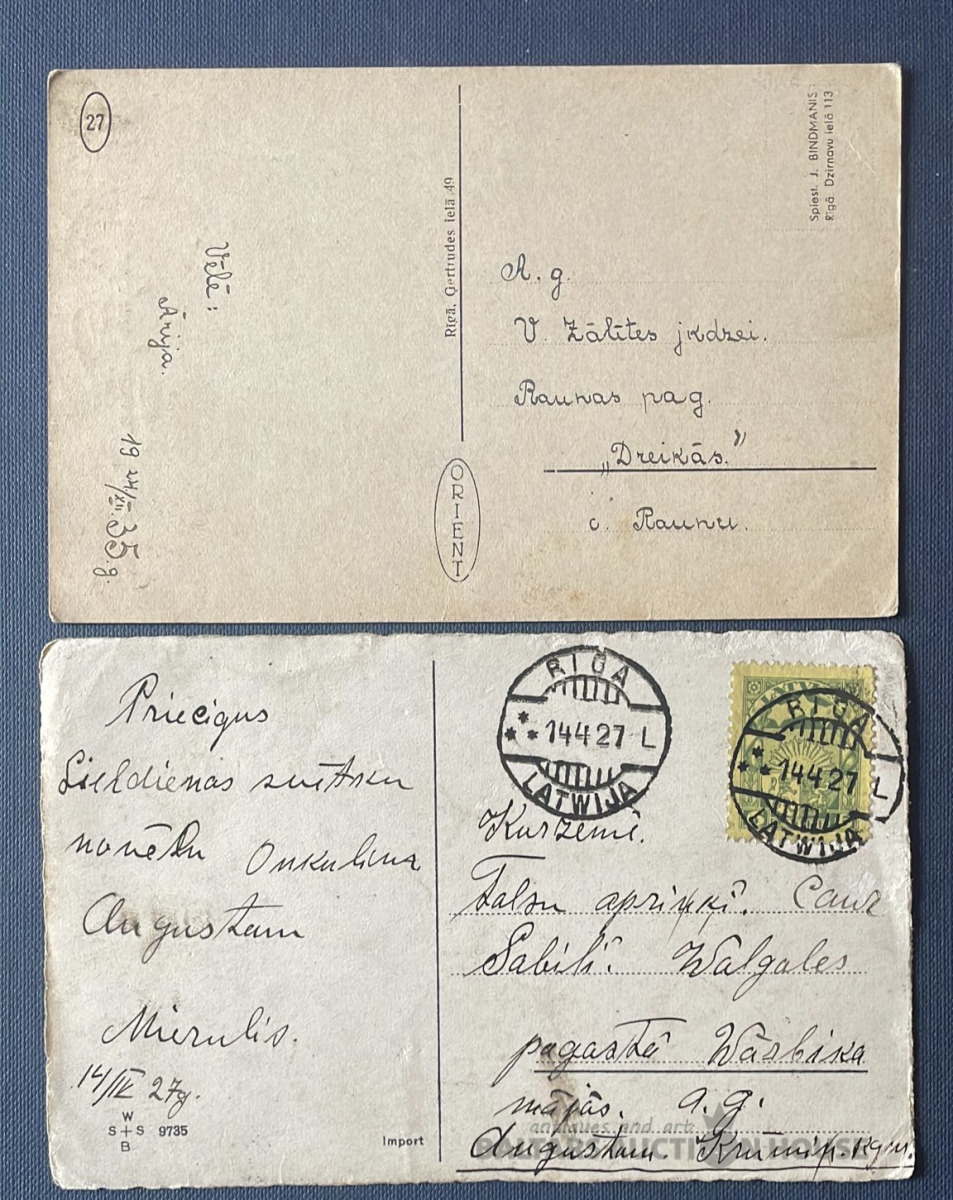 27
Vēlē:
Ārija.
19 24/XII 35.g.
Rīgā, Ģertrudes ielā 49
ORIENT
Spiest. J. BINDMANIS
Rīgā Dzirnavu ielā 113
A. g.
V. Zālītes jkdzei.
Raunas pag.
„Dreikās."
c. Raunu.
Priecigus
Lieldienas svētku
novēlu Onkulina
Augustam
Miervlis.
14/IV 27g.
W
S+S 9735
B
Import
RIGA
14 4 27 L
LATWIJA
RIGA
14 4 27 L
LATWIJA
Kurzemē.
Talsu apriņķī. Caur
Sabili. Walgales
pagastā Wāsbika
mājās. a. g.
Augustam
antiques and art
BALTARS AUCTION HOUSE